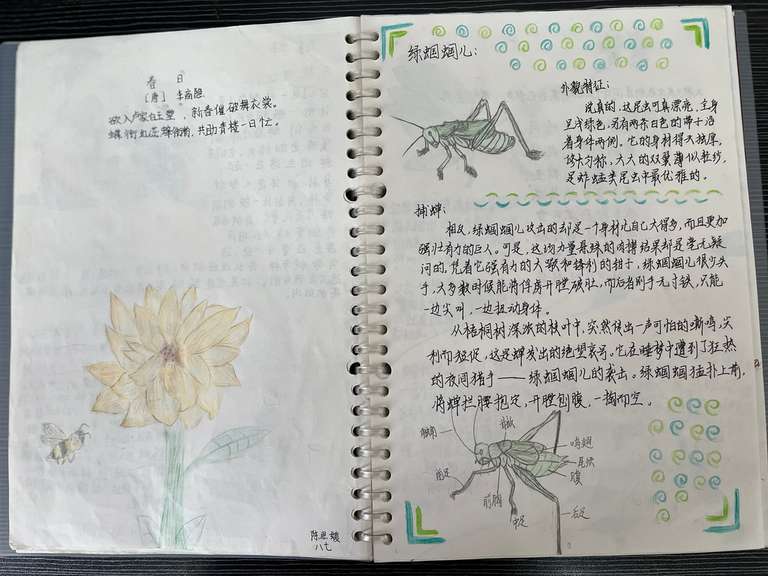 春 日
[唐] 李商隐
欲入卢家白玉堂，新春催破舞衣裳。
蝶衔红蕊蜂衔粉，共助青楼一日忙。
八七
绿蝈蝈儿：
外貌特征：
说真的，这昆虫可真漂亮，全身
呈浅绿色，另有两条白色的带子沿
着身体两侧。它的身材得天独厚，
修长匀称，大大的双翼薄似轻纱，
是蚱蜢类昆虫中最优雅的。
捕蝉：
相反，绿蝈蝈儿攻击的却是一个身材比自己大得多，而且更加
强壮有力的巨人。可是，这场力量悬殊的肉搏结果却是毫无疑
问的。凭着它强有力的大颚和锋利的钳子，绿蝈蝈儿很少失
手，大多数时候能将俘虏开膛破肚，而后者则手无寸铁，只能
一边尖叫，一边扭动身体。
从梧桐树深浓的枝叶中，突然传出一声可怕的嘶鸣，尖
利而短促，这是蝉发出的绝望哀号。它在睡梦中遭到了狂热
的夜间猎手——绿蝈蝈儿的袭击。绿蝈蝈猛扑上前，
将蝉拦腰抱定，开膛剖腹，一掏而空。
触角
前足
前胸
中足
后足
腹